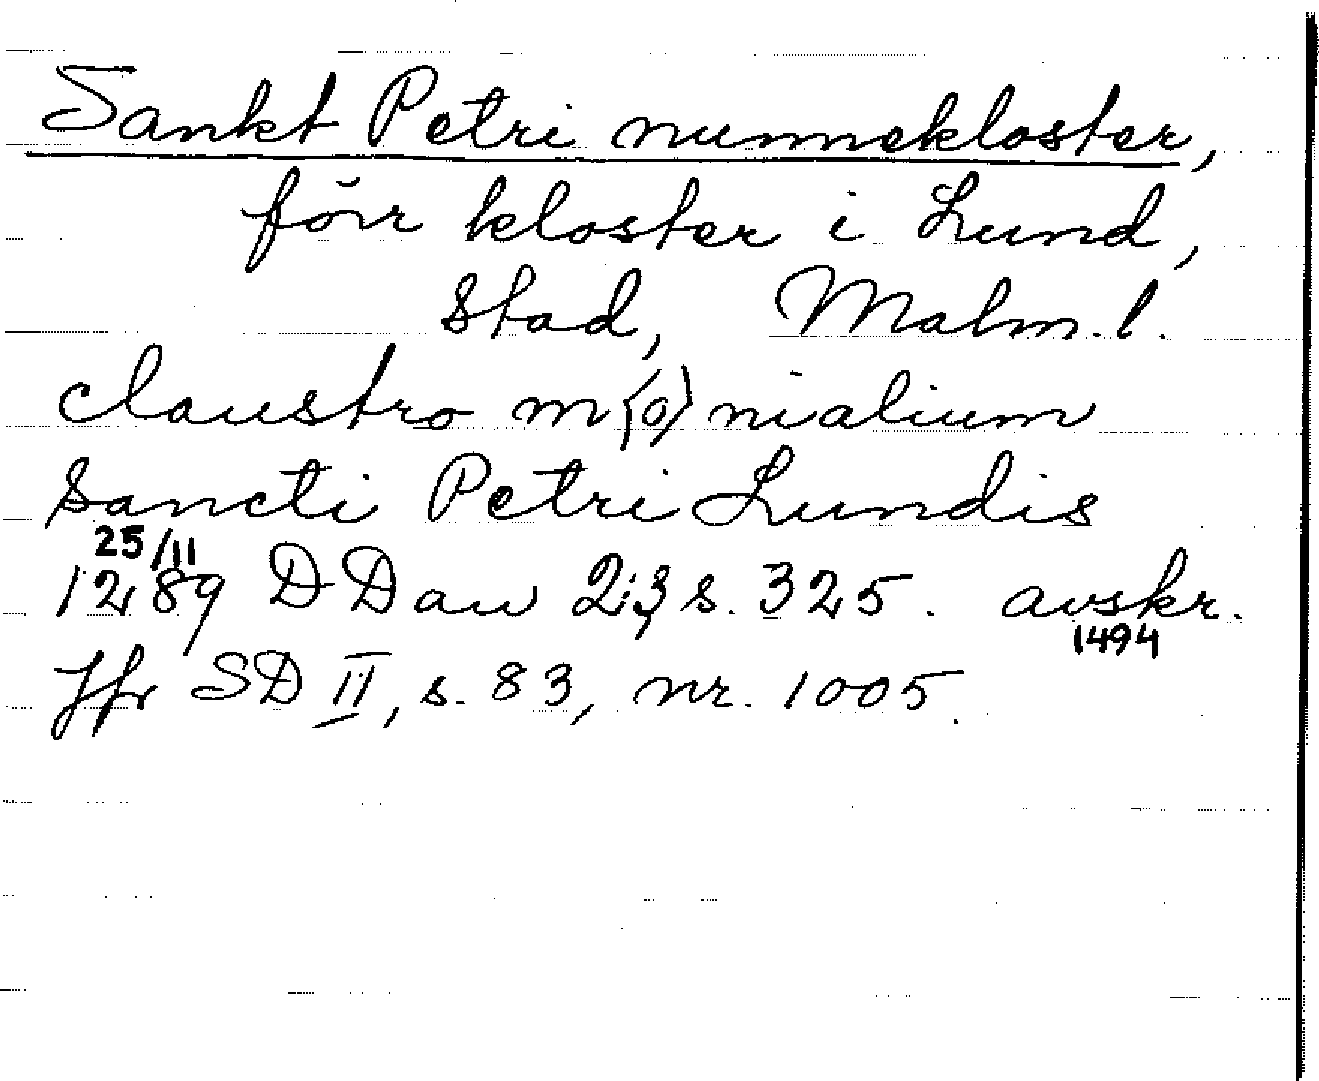 Sankt Petri nunnekloster,
förr kloster i Lund,
stad, Malm. l.
claustro m⟨o⟩nialium
Sancti Petri Lundis
25/11
1289 DDan 2:3 s. 325. avskr.
1494
Jfr SD II, s. 83, nr. 1005.